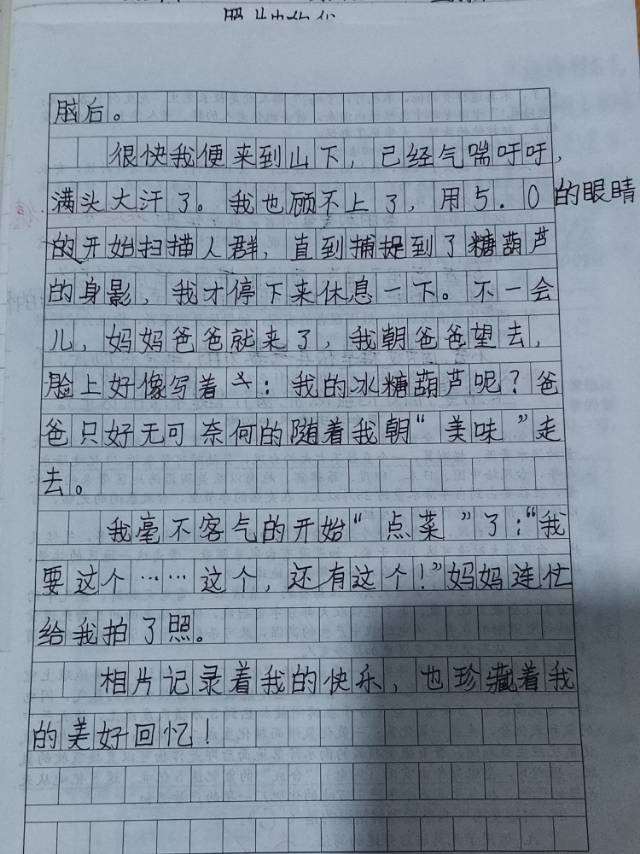 脑后。
很快我便来到山下，已经气喘吁吁，
满头大汗了。我也顾不上了，用5.0的眼睛
的开始扫描人群，直到捕捉到了糖葫芦
的身影，我才停下来休息一下。不一会
儿，妈妈爸爸就来了，我朝爸爸望去，
脸上好像写着：我的冰糖葫芦呢？爸
爸只好无可奈何的随着我朝“美味”走
去。
我毫不客气的开始“点菜”了：“我
要这个……这个，还有这个！”妈妈连忙
给我拍了照。
相片记录着我的快乐，也珍藏着我
的美好回忆！